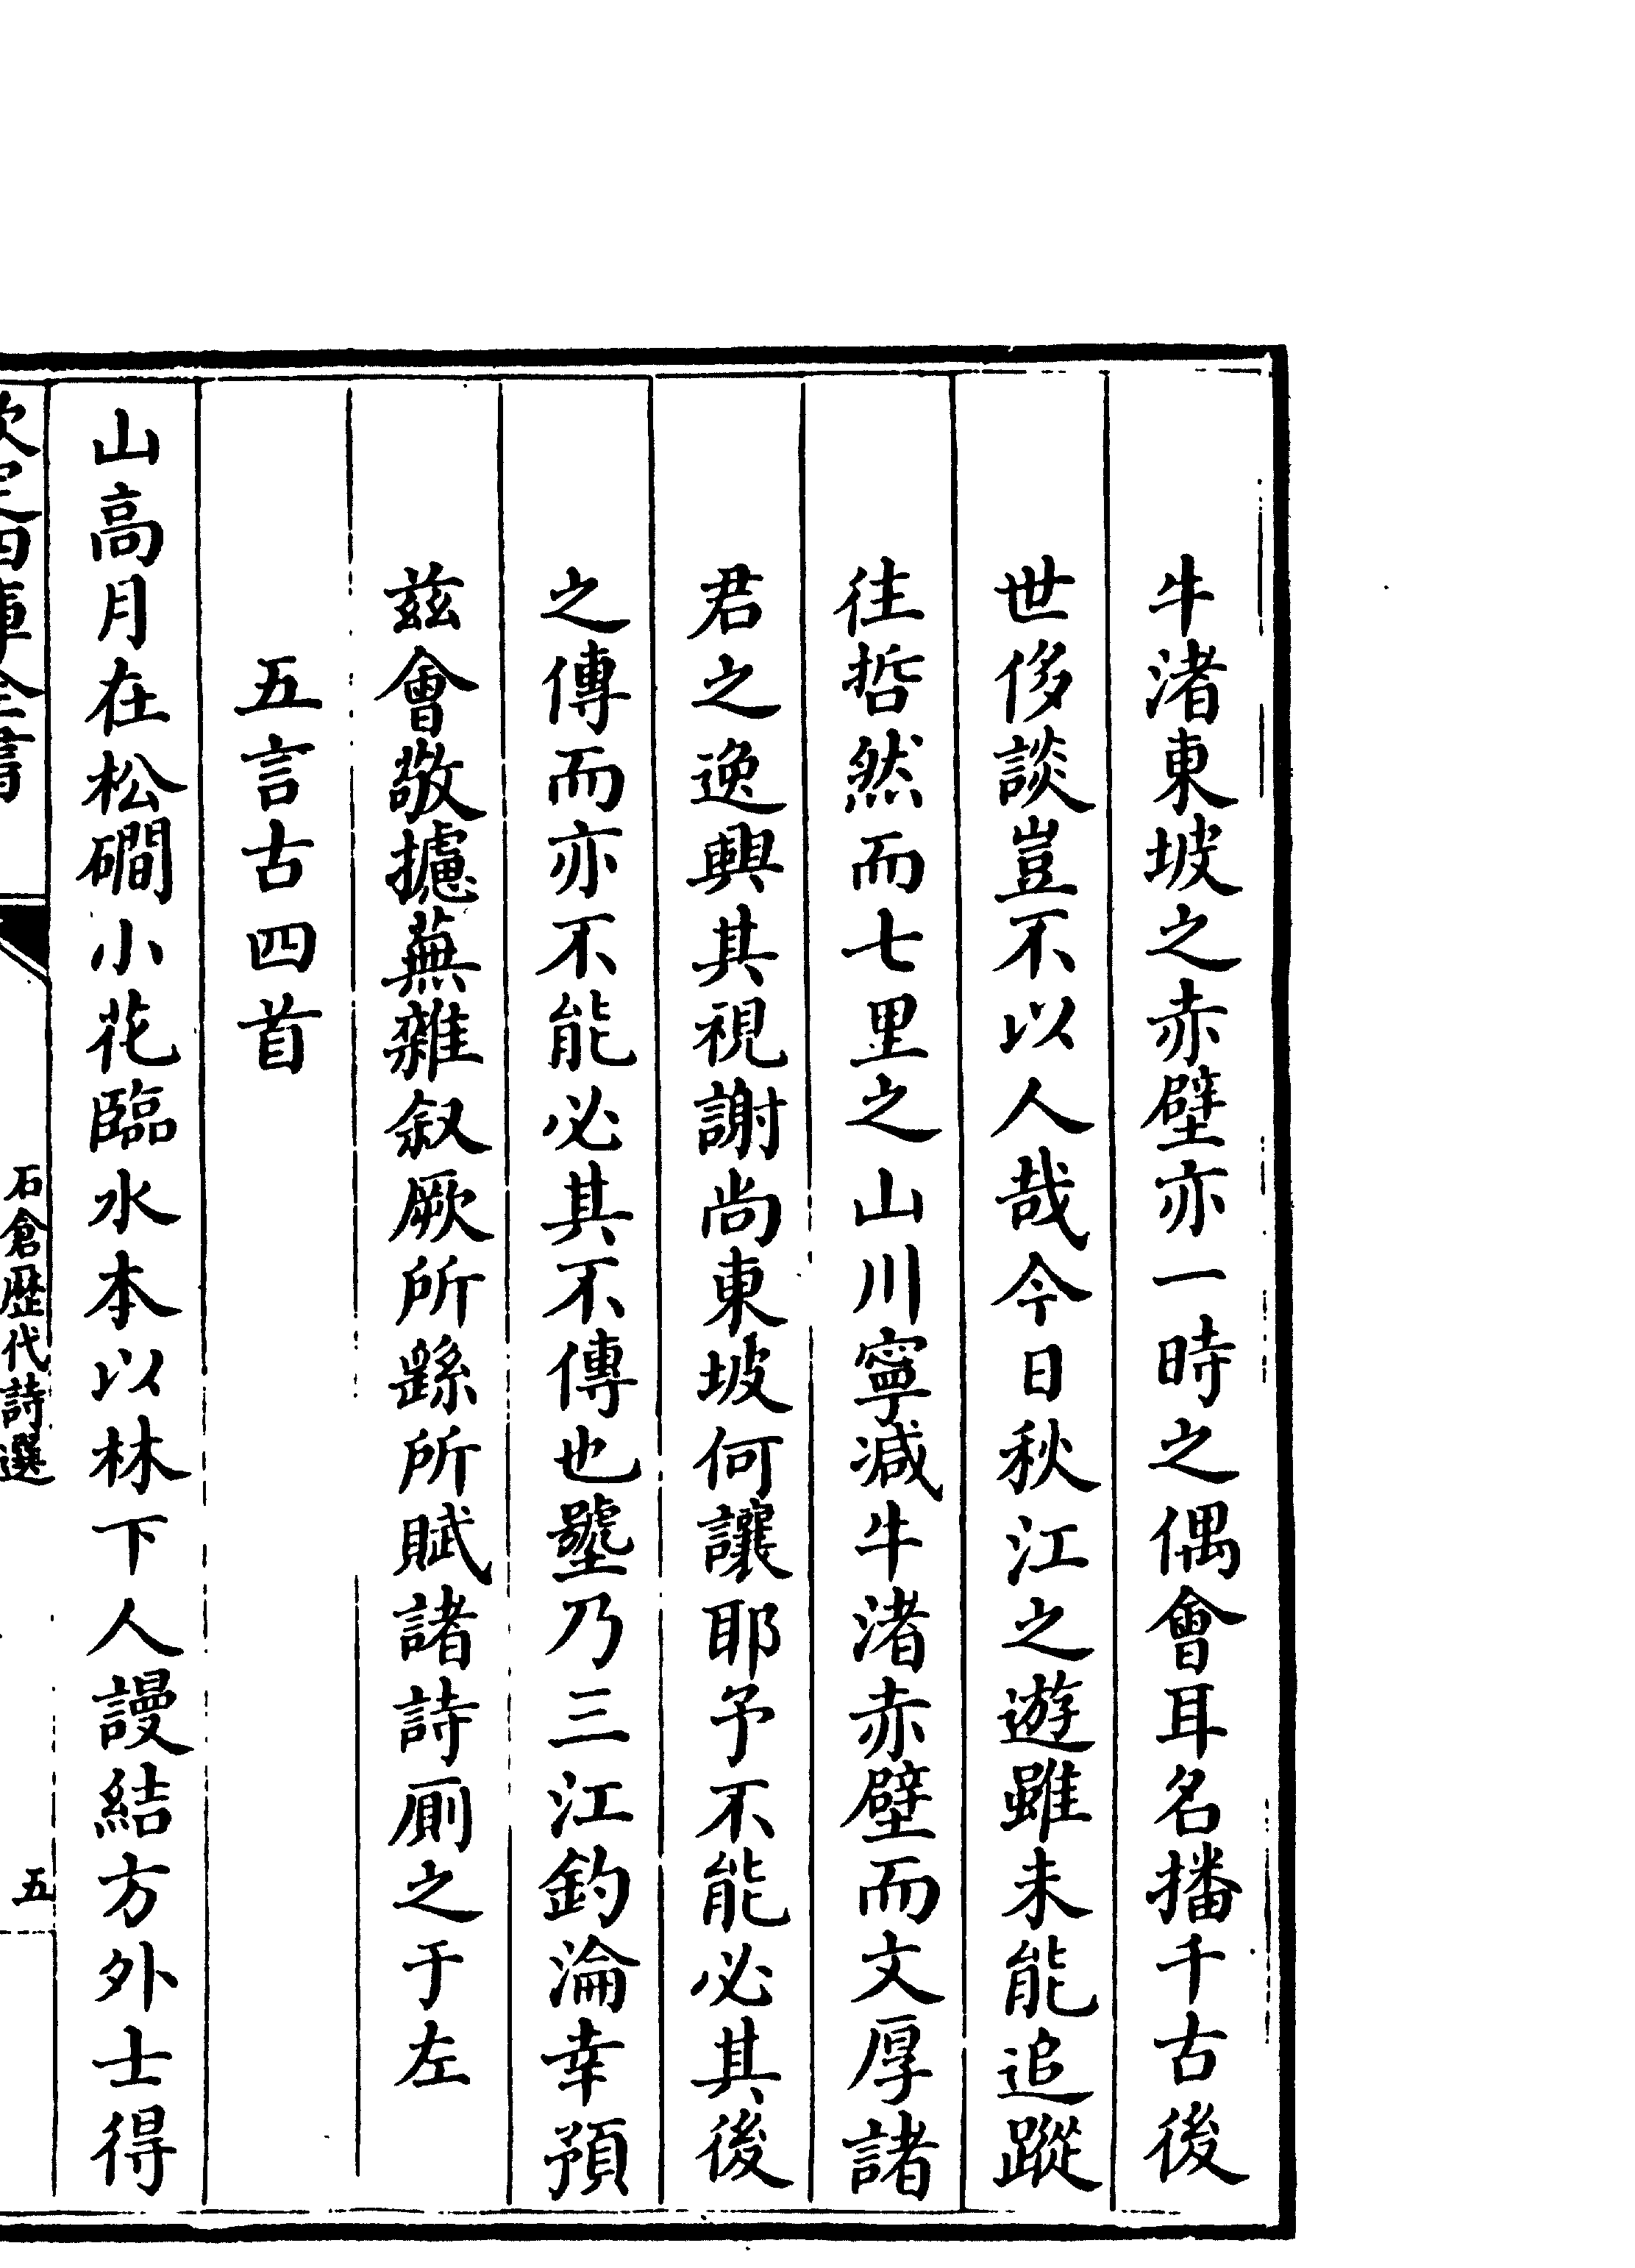 牛渚東坡之赤壁亦一時之偶會耳名播千古後
世侈談豈不以人哉今日秋江之遊雖未能追蹤
往哲然而七里之山川寧減牛渚赤壁而文厚諸
君之逸興其視謝尚東坡何讓耶予不能必其後
之傳而亦不能必其不傳也璺乃三江釣淪幸預
兹會敬攄蕪雜叙厥所繇所賦諸詩厠之于左
五言古四首
山高月在松磵小花臨水本以林下人謾結方外士得
欽定四庫全書
石倉歴代詩選
五